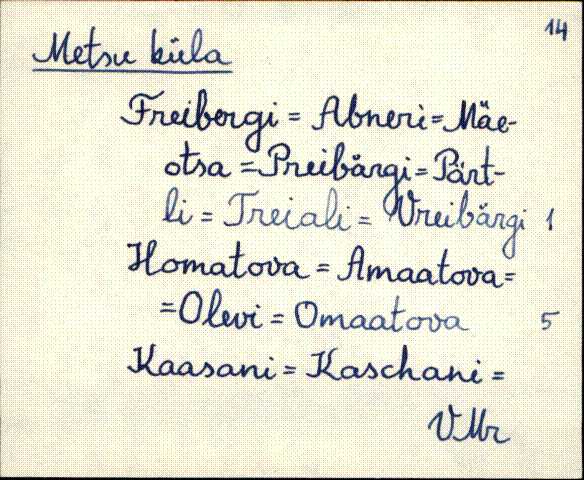 14
Metsu küla
Freibergi = Abneri = Mäe-
otsa = Preibärgi = Pärt-
li = Treiali = Vreibärgi 1
Homatova = Amaatova =
= Olevi = Omaatova 5
Kaasani = Kaschani =
VMr